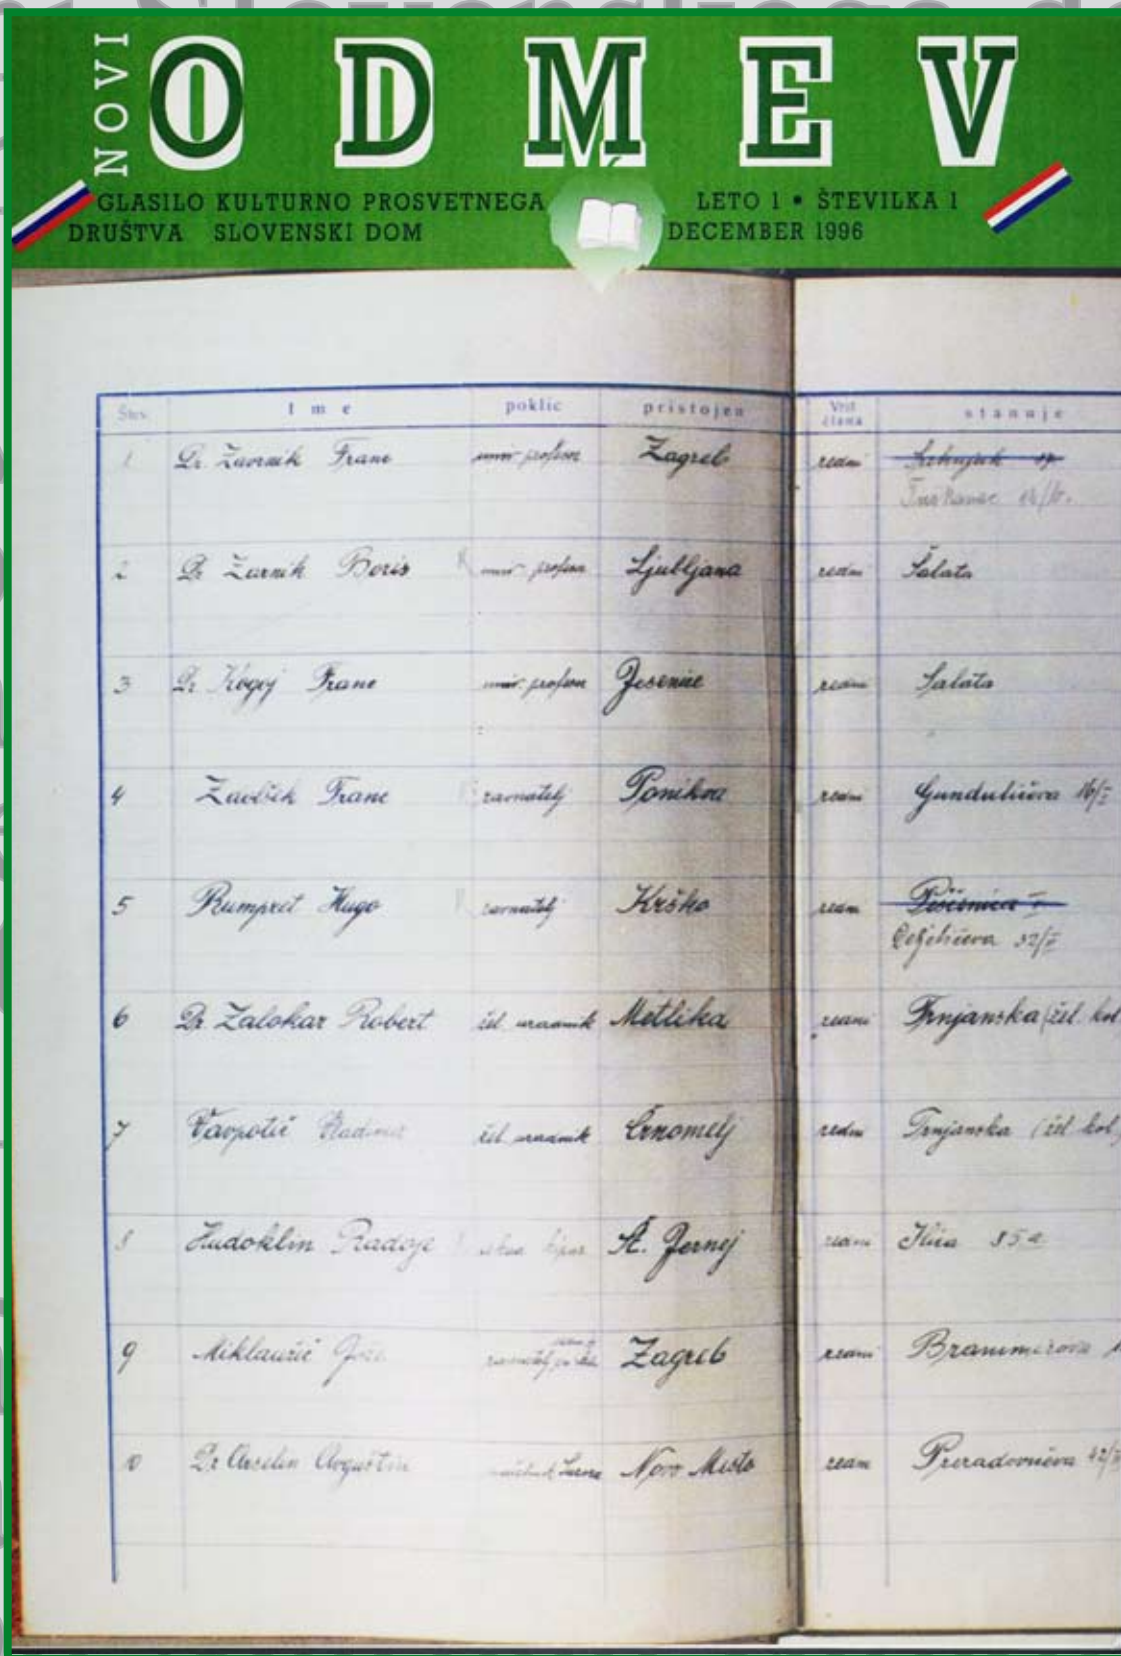 NOVI
ODMEV
GLASILO KULTURNO PROSVETNEGA
DRUŠTVA SLOVENSKI DOM
LETO 1 • ŠTEVILKA 1
DECEMBER 1996
Štev. Ime poklic pristojen Vrst člana stanuje
1 Dr. Zavrnik Franc univ. profesor Zagreb redni
Tuškanac
2 Dr Zarnik Boris univ. profesor Ljubljana redni Šalata
3 Dr Kogoj Franc univ. profesor Jesenice redni Šalata
4 Franc ravnatelj Ponikva redni Gundulićeva 16/I
5 Rumpret Hugo ravnatelj Krško redni
32/II
6 Dr Zalokar Robert žel. uradnik Metlika redni Trnjanska (žel. kol
7 Vavpotič Vladimir žel. uradnik Črnomelj redni Trnjanska (žel. kol
8 Hudoklin Radoje kipar Št. Jernej redni Ilica 85a
9 Miklaužič ravnatelj Zagreb redni Branimirova
10 Dr Avguštin Novo Mesto redni Preradovićeva 42/